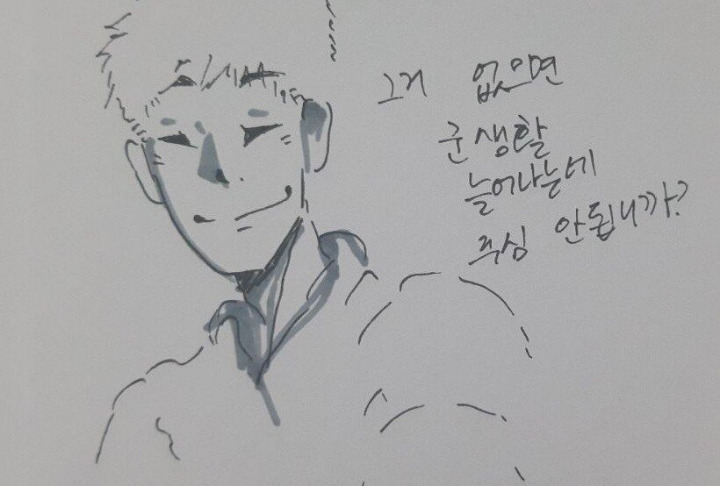 그거 없으면
군생활
늘어나는데
주심 안됩니까?